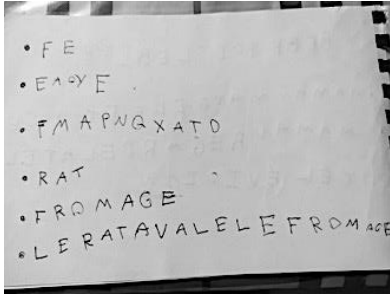 • FE
• EAOYE
• FMAPNQXATO
• RAT
• FROMAGE
• LERATAVALELEFROMAGE